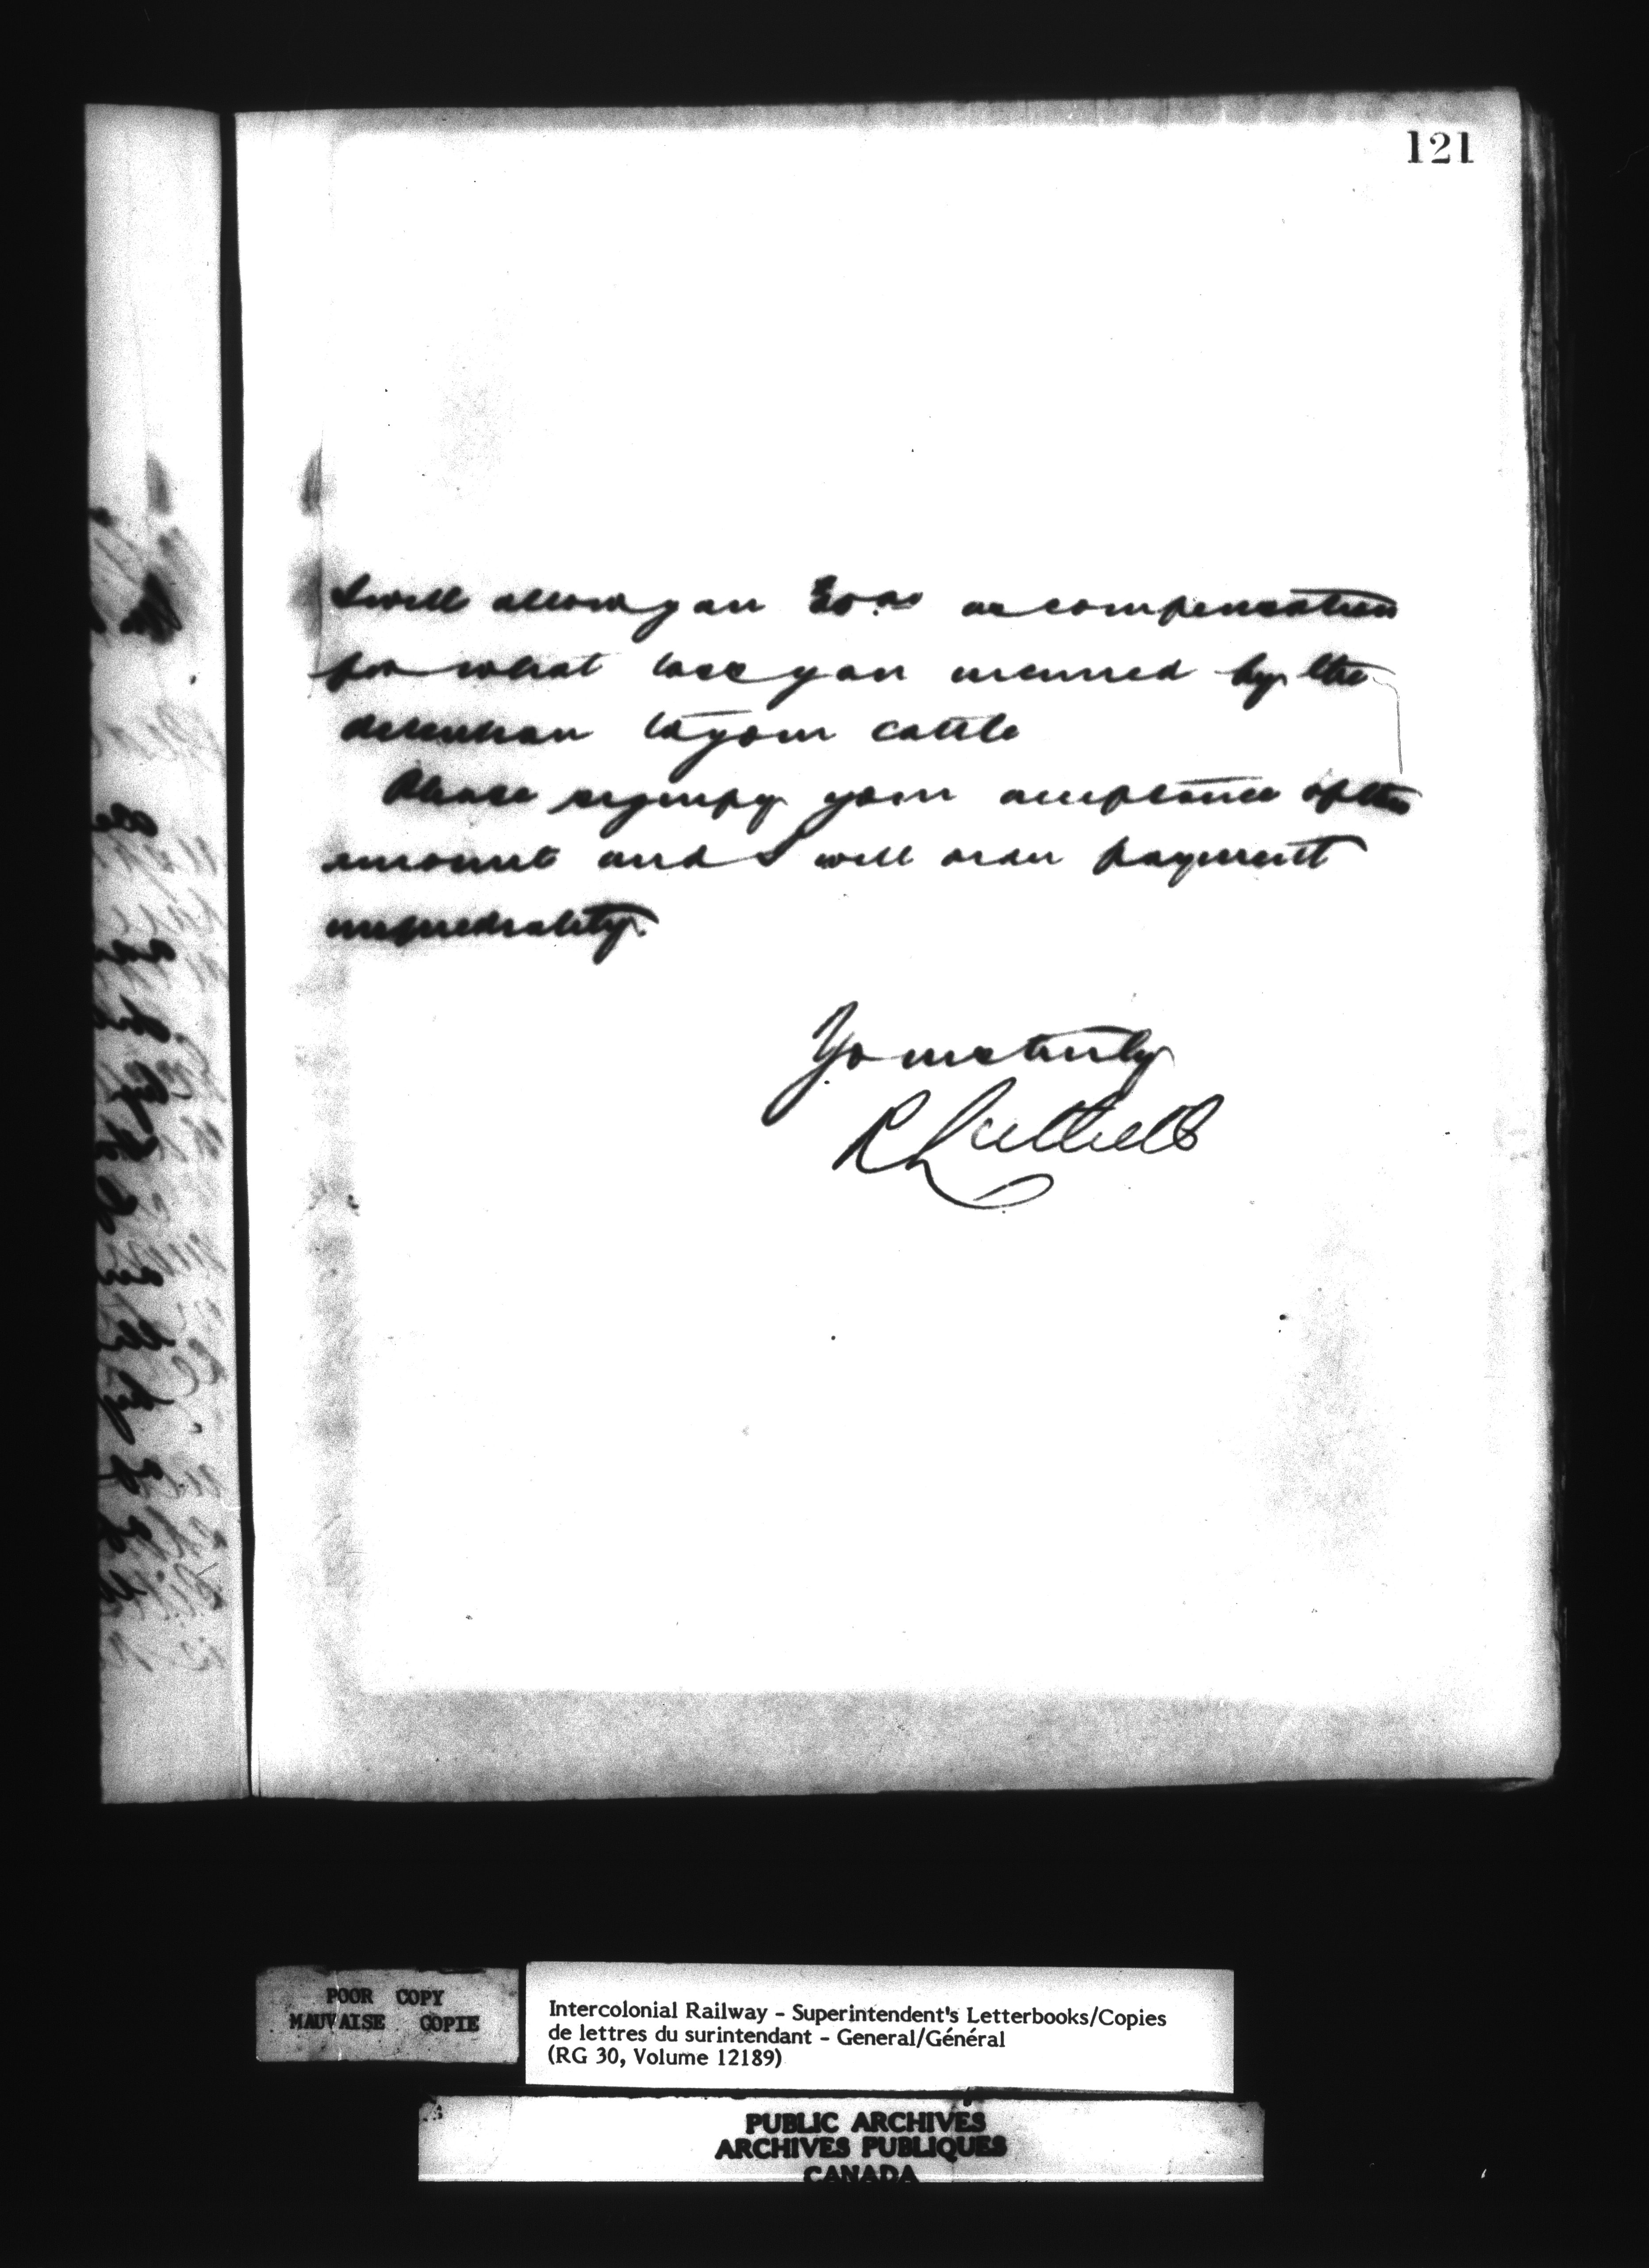 121
I will allow you 30.00 as compensation
for what loss you incurred by the
detention to your cattle
Please signify your acceptance of this
amount and I will order payment
immediately.
Yours truly
R Luttrell
POOR COPY
MAUVAISE COPIE
Intercolonial Railway - Superintendent's Letterbooks/Copies
de lettres du surintendant - General/Général
(RG 30, Volume 12189)
PUBLIC ARCHIVES
ARCHIVES PUBLIQUES
CANADA